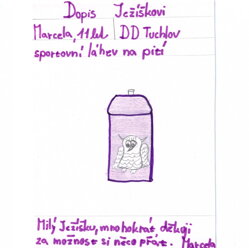 Dopis Ježíškovi
Marcela, 11 let DD Tuchlov
sportovní láhev na pití
Milý Ježíšku, mnohokrát děkuji
za možnost si něco přát. Marcela